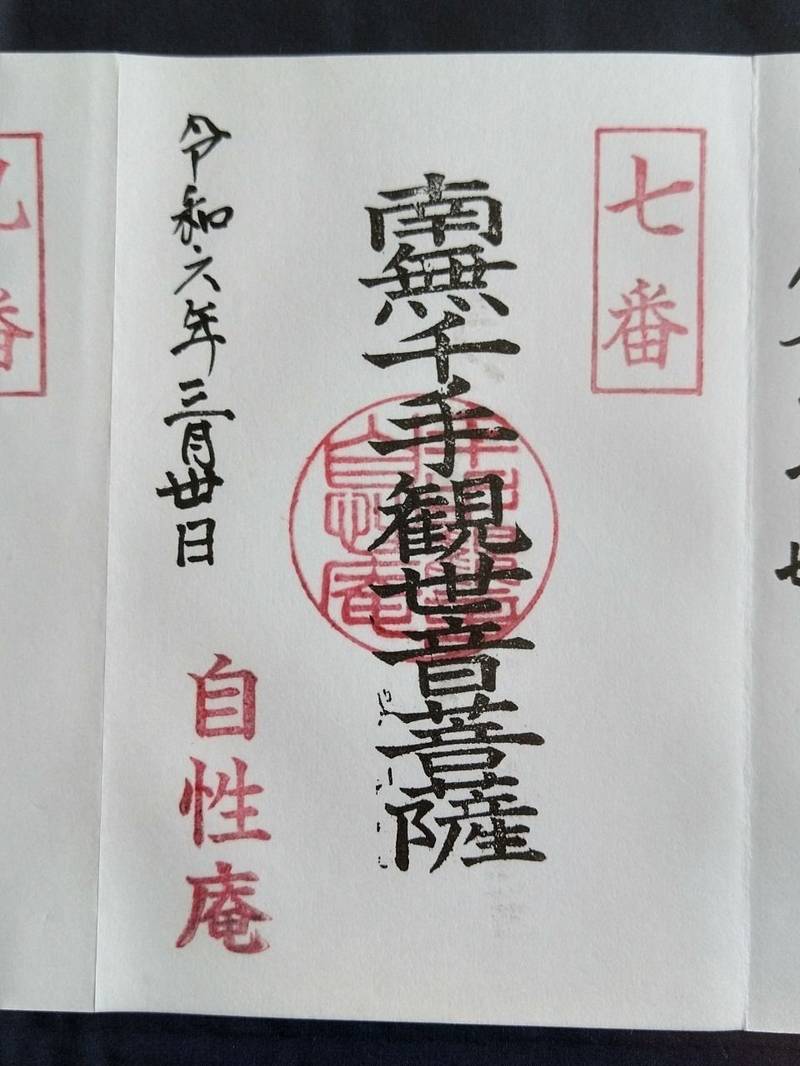 七番
南無千手観世音菩薩
自性庵
令和六年三月丗日
自性庵